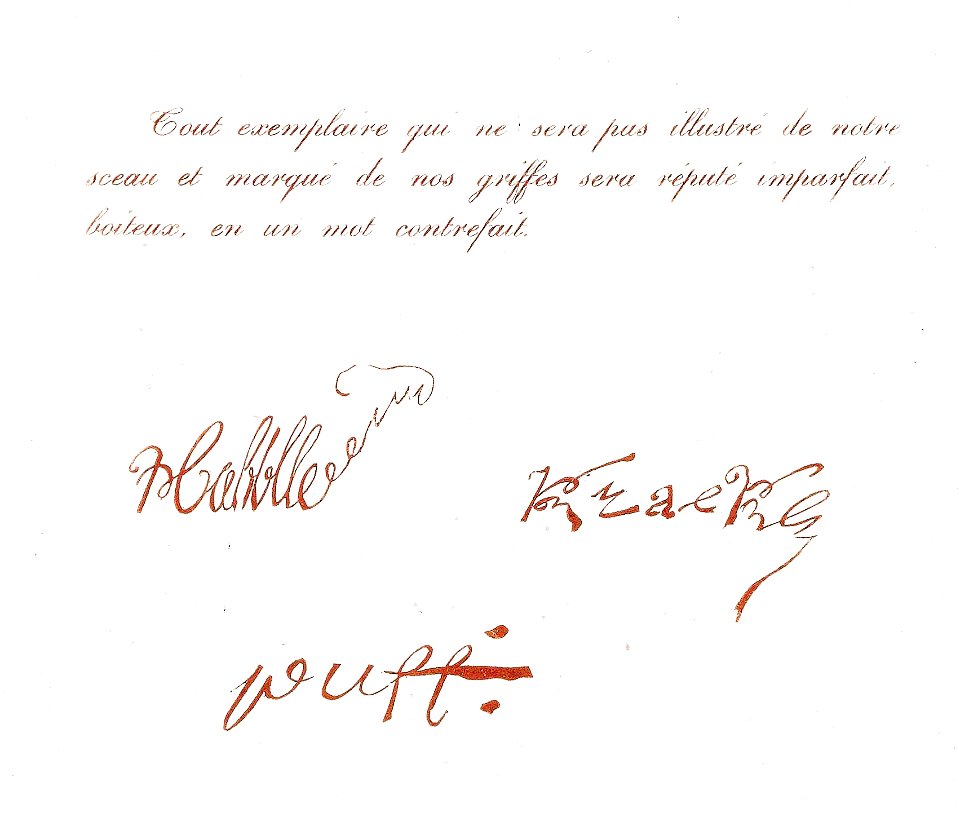 Tout exemplaire qui ne sera pas illustré de notre
sceau et marqué de nos griffes sera réputé imparfait,
boiteux, en un mot contrefait.
Hahblle
Krackq
puff